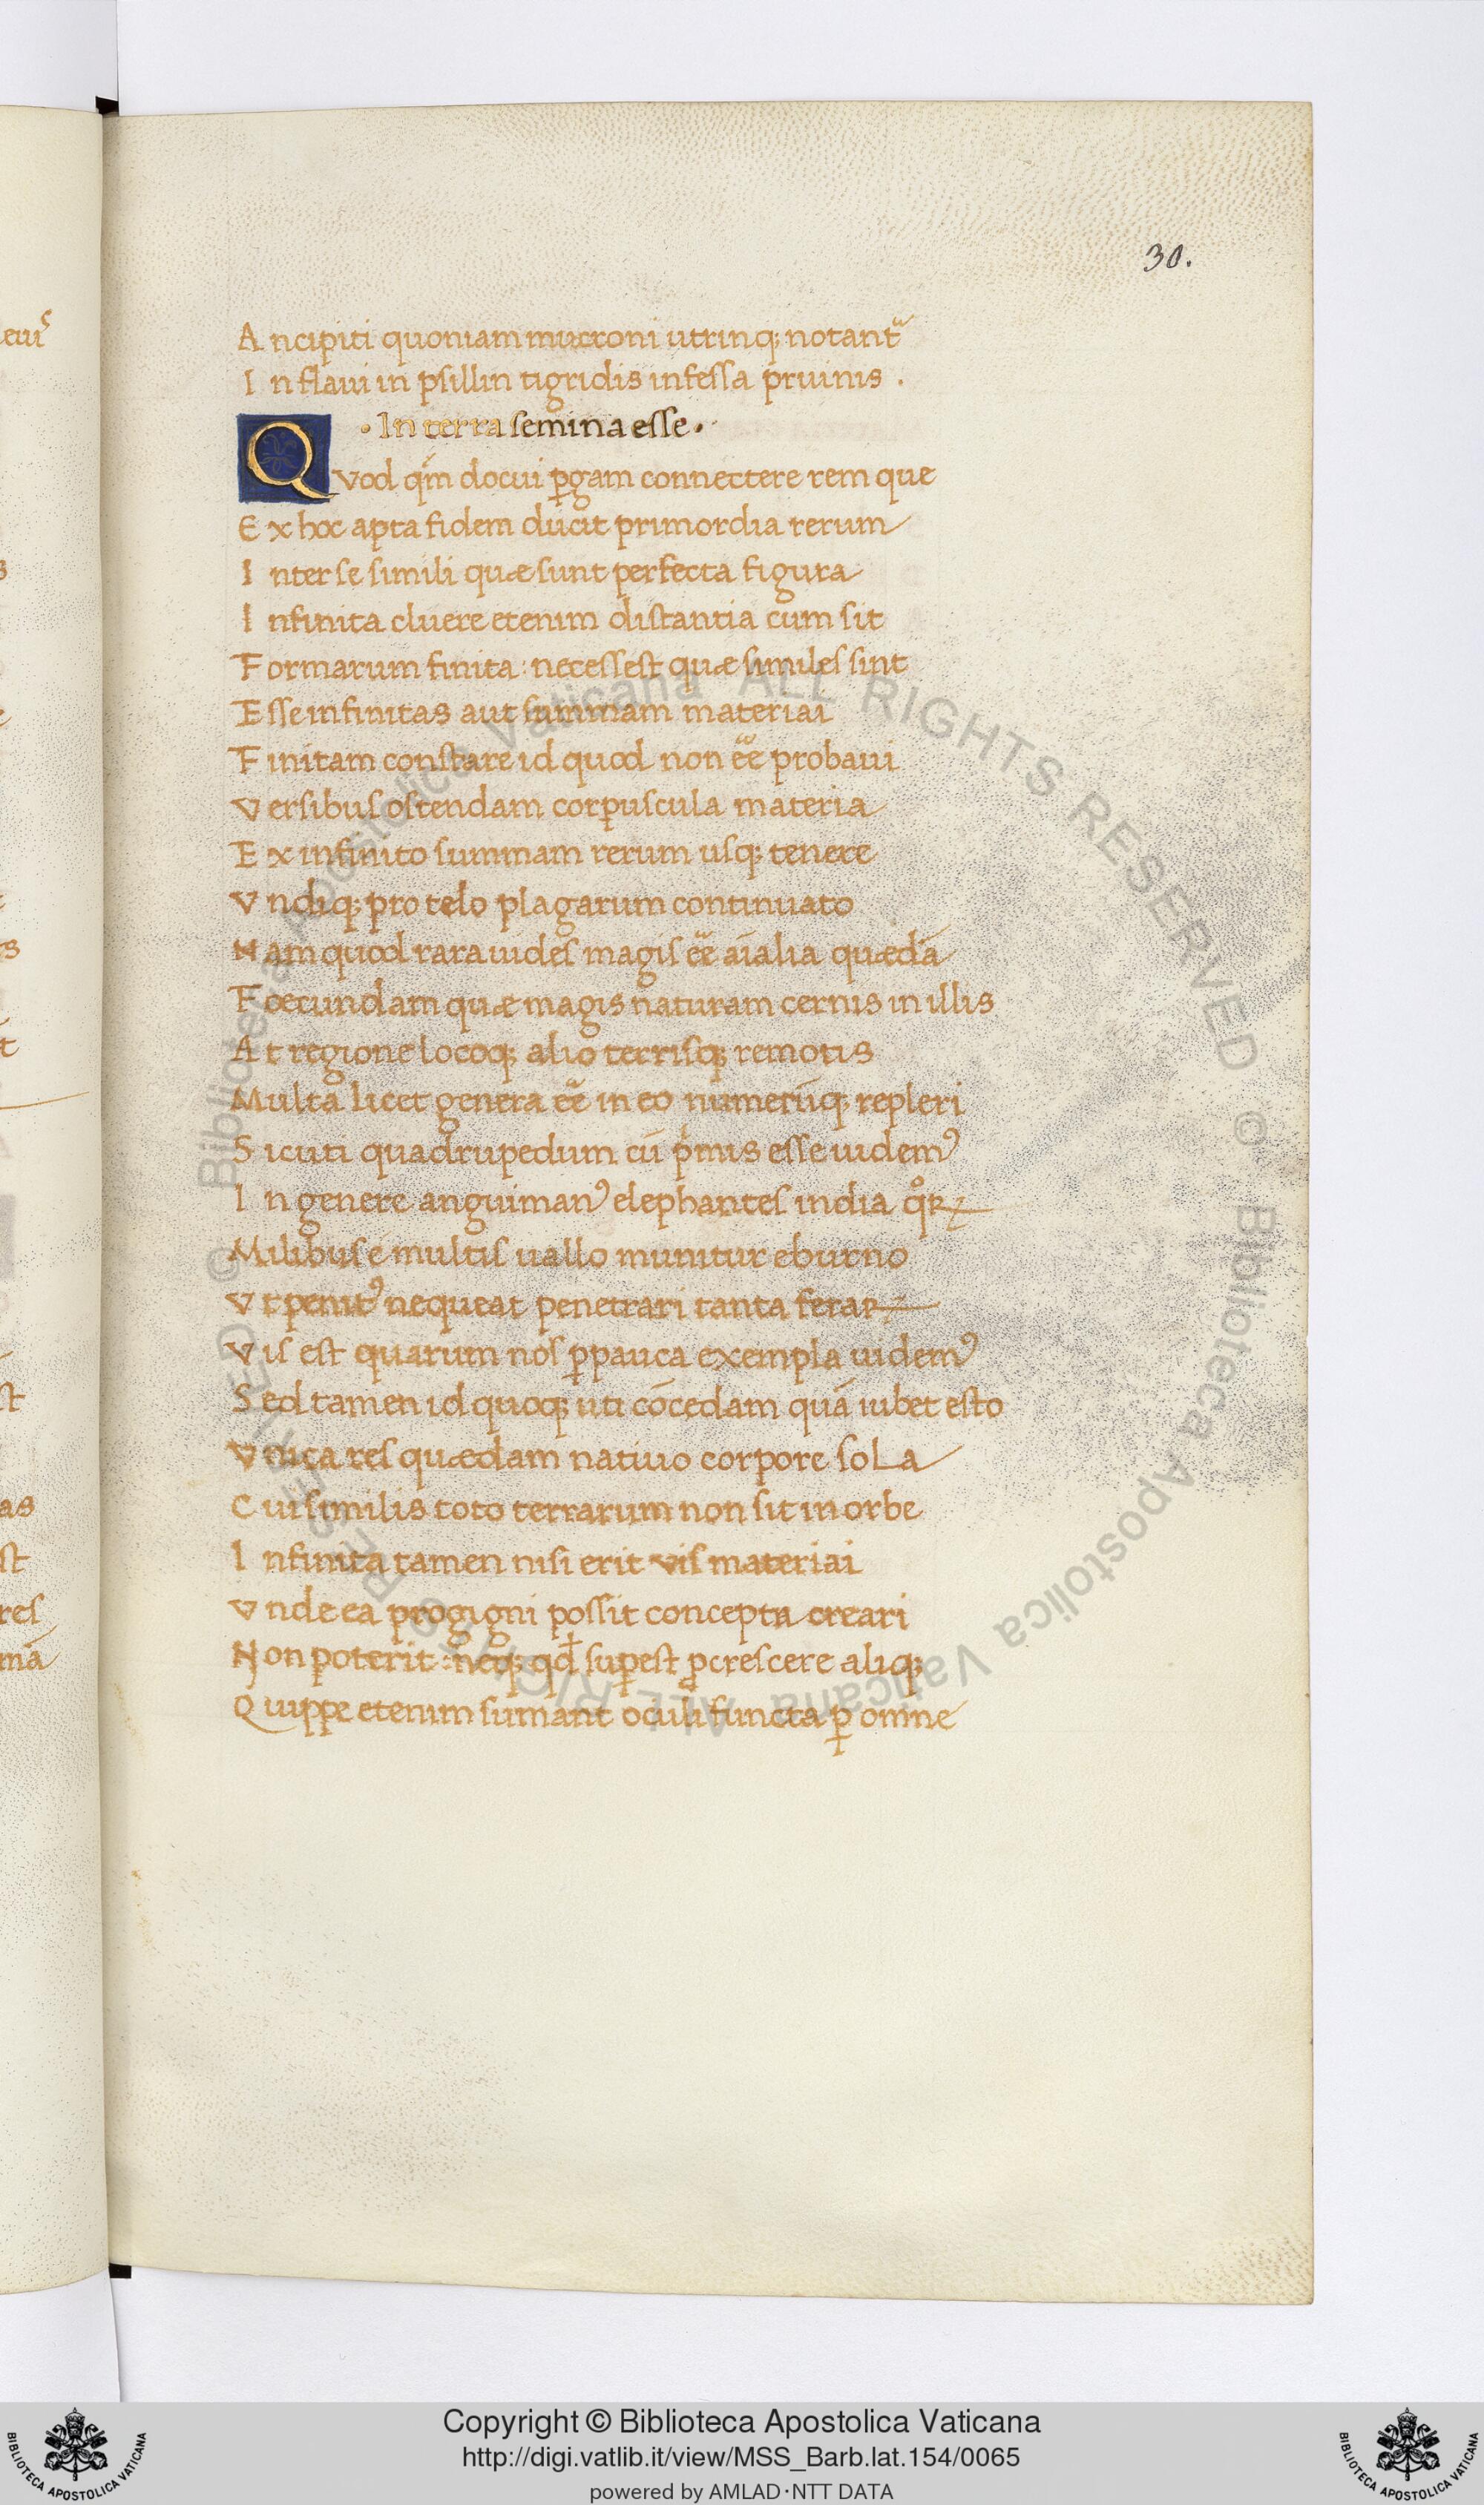 30.
Ancipiti quoniam mucroni utrinq; notant᷑
In flaui in psillin tigridis infessa pruinis .
·In terra semina esse·
Qvod qm̄ docui ꝑgam connectere rem que
Ex hoc apta fidem ducit primordia rerum
Inter se simili quæ sunt perfecta figura
Infinita cluere etenim distantia cum sit
Formarum finita: necessest quæ similes sint
Esse infinitas aut summam materiai
Finitam constare id quod non ee̅ probaui
Versibus ostendam corpuscula materia
Ex infinito summam rerum usq; tenere
Vndiq; pro telo plagarum continuato
Nam quod rara uides magis ee̅ aīalia quædā
Foecundam quæ magis naturam cernis in illis
At regione locoq; alio terrisq; remotis
Multa licet genera ee̅ in eo numerūq; repleri
Sicuti quadrupedum cū pͥmis esse uidemꝰ
In genere anguimanꝰ elephantes india qͦꝝ
Milibus e multis uallo munitur eburno
Vt penitꝰ nequeat penetrari tanta feraꝝ
Vis est quarum nos ꝑpauca exempla uidemꝰ
Sed tamen id quoq; uti cōcedam quā iubet esto
Vnica res quædam natiuo corpore sola
Cui similis toto terrarum non sit in orbe
Infinita tamen nisi erit vis materiai
Vnde ea progigni possit concepta creari
Non poterit: neq; qđ suꝑest ꝓcrescere aliq;
Quippe etenim sumant oculi functa ꝑ omne
Copyright © Biblioteca Apostolica Vaticana
http://digi.vatlib.it/view/MSS_Barb.lat.154/0065
powered by AMLAD·NTT DATA